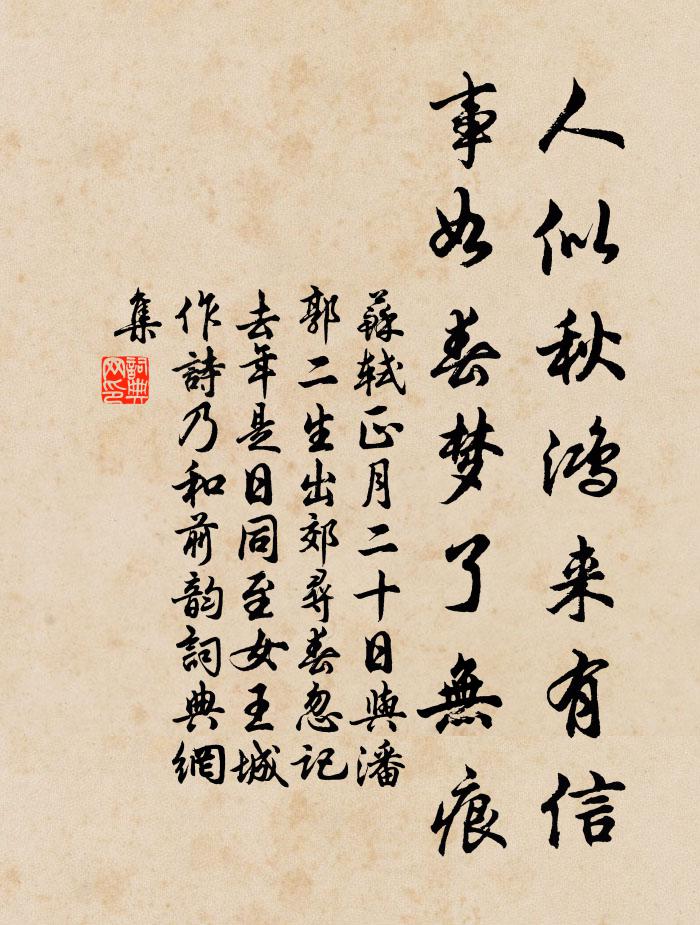 人似秋鸿来有信
事如春梦了無痕
蘇軾正月二十日與潘
郭二生出郊尋春忽記
去年是日同至女王城
作詩乃和前韵詞典網
集
詞典
网印